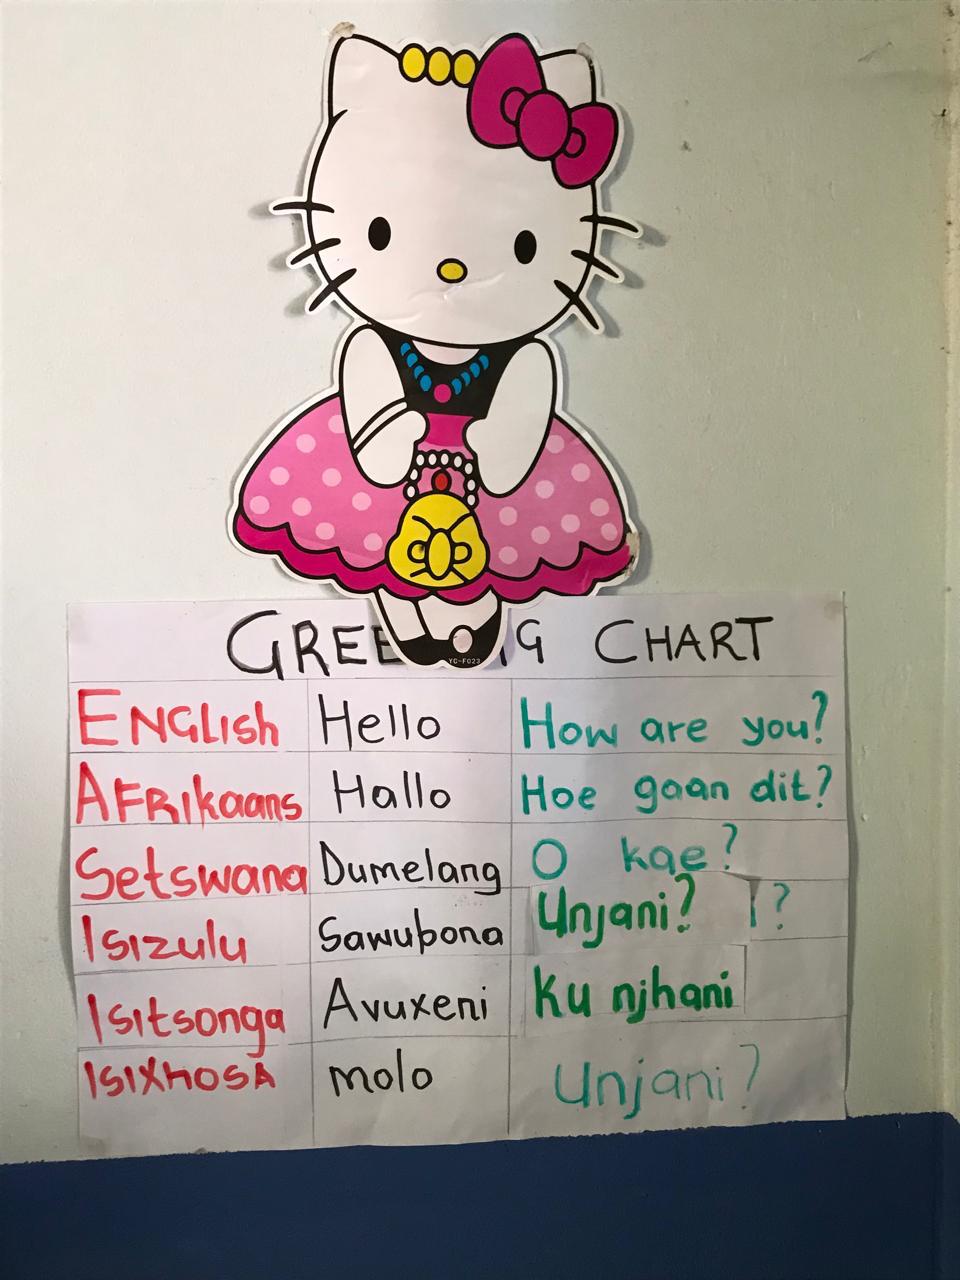 YC-F023
GREE G CHART
ENGLISH Hello How are you?
AFRIKaans Hallo Hoe gaan dit?
Setswana Dumelang O kae?
Isizulu Sawubona Unjani? ?
Isitsonga Avuxeni Ku njhani
ISIXHOSA molo Unjani?